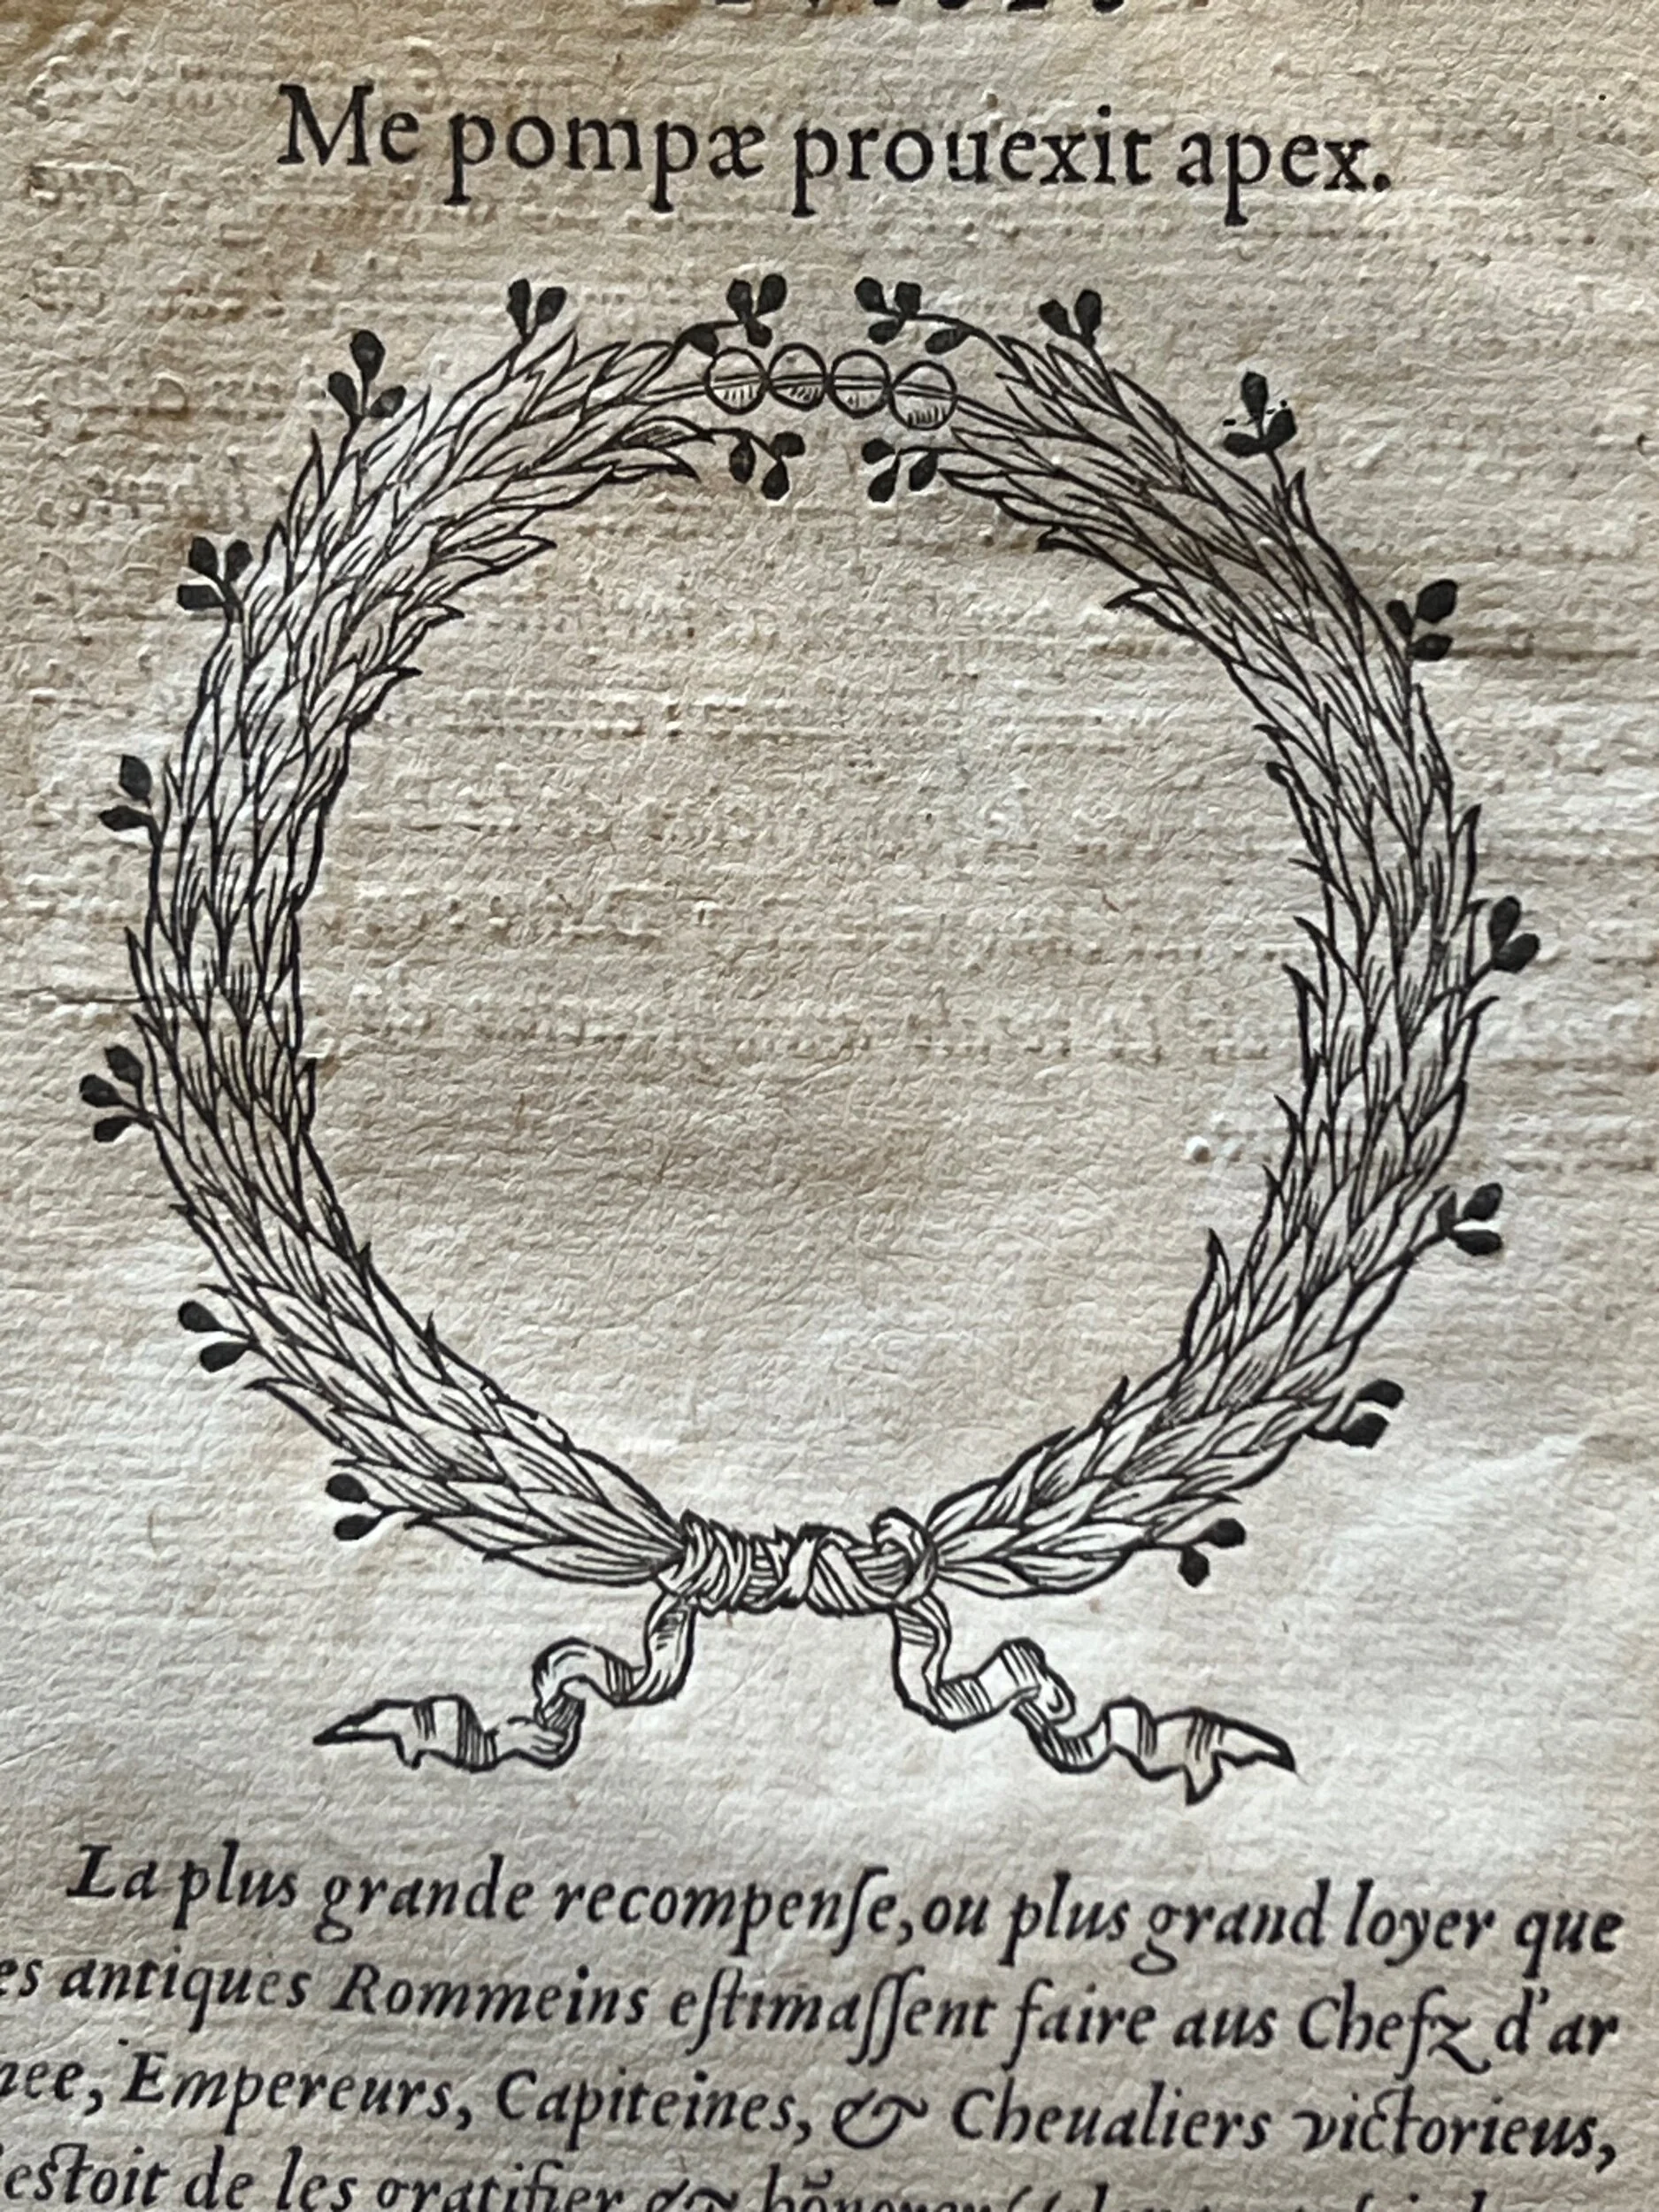 Me pompæ prouexit apex.
La plus grande recompenſe, ou plus grand loyer que
es antiques Rommeins eſtimaſſent faire aus Chefz d'ar
nee, Empereurs, Capiteines, & Cheualiers victorieus,
eſtoit de les gratifier & hõnorer